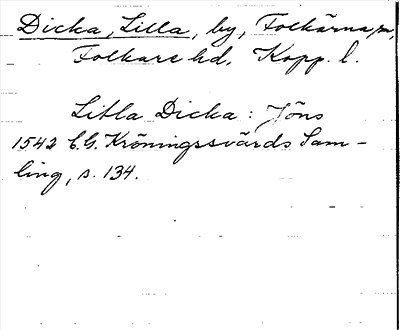 Dicka, Lilla, by, Folkärna sn,
Folkare hd. Kopp. l.
Litla Dicka: Jöns
1542 C.G. Kröningssvärds Sam-
ling, s. 134.